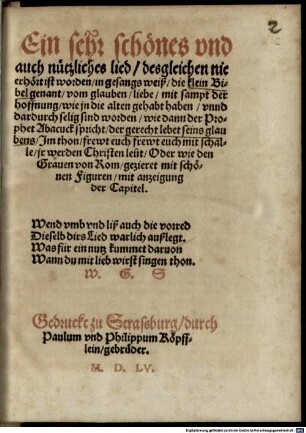 2
Ein sehr schönes vnd
auch nützliches lied / desgleichen nie
erhört ist worden / in gesangs weiß / die klein Bi-
bel genant / vom glauben / liebe / mit sampt der
hoffnung / wie jn die alten gehabt haben / vnnd
dardurch selig sind worden / wie dann der Pro-
phet Abacuck spricht / der gerecht lebet seins glau
bens / Im thon / frewt euch frewt euch mit schal-
le / jr werden Christen leüt / Oder wie den
Grauen von Rom / gezieret mit schö-
nen Figuren / mit anzeigung
der Capitel.
Wend vmb vnd liß auch die vorred
Dieselb dirs Lied warlich außlegt.
Was für ein nutz kummet daruon
Wann du mit lieb wirst singen thon.
W. G. S
Gedruckt zu Strasburg / durch
Paulum vnd Philippum Köpff-
lein / gebrüder.
M. D. LV.